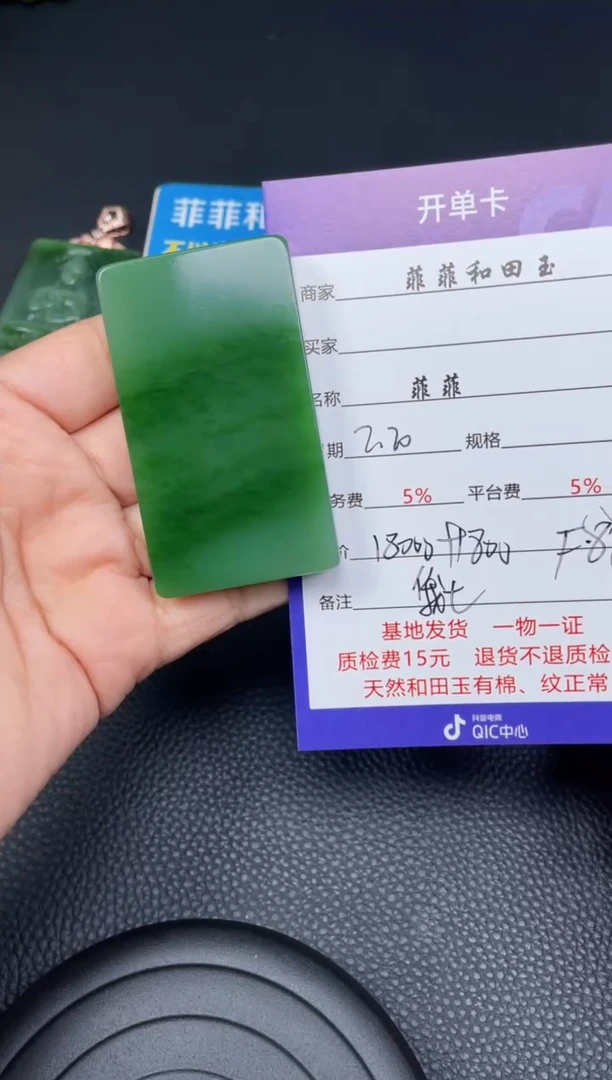 菲菲和
开单卡
商家 菲菲和田玉
买家
名称 菲菲
期 2.20 规格
务费 5% 平台费 5%
价 18000
备注
基地发货 一物一证
质检费15元 退货不退质检
天然和田玉有棉、纹正常
抖音电商
QIC中心